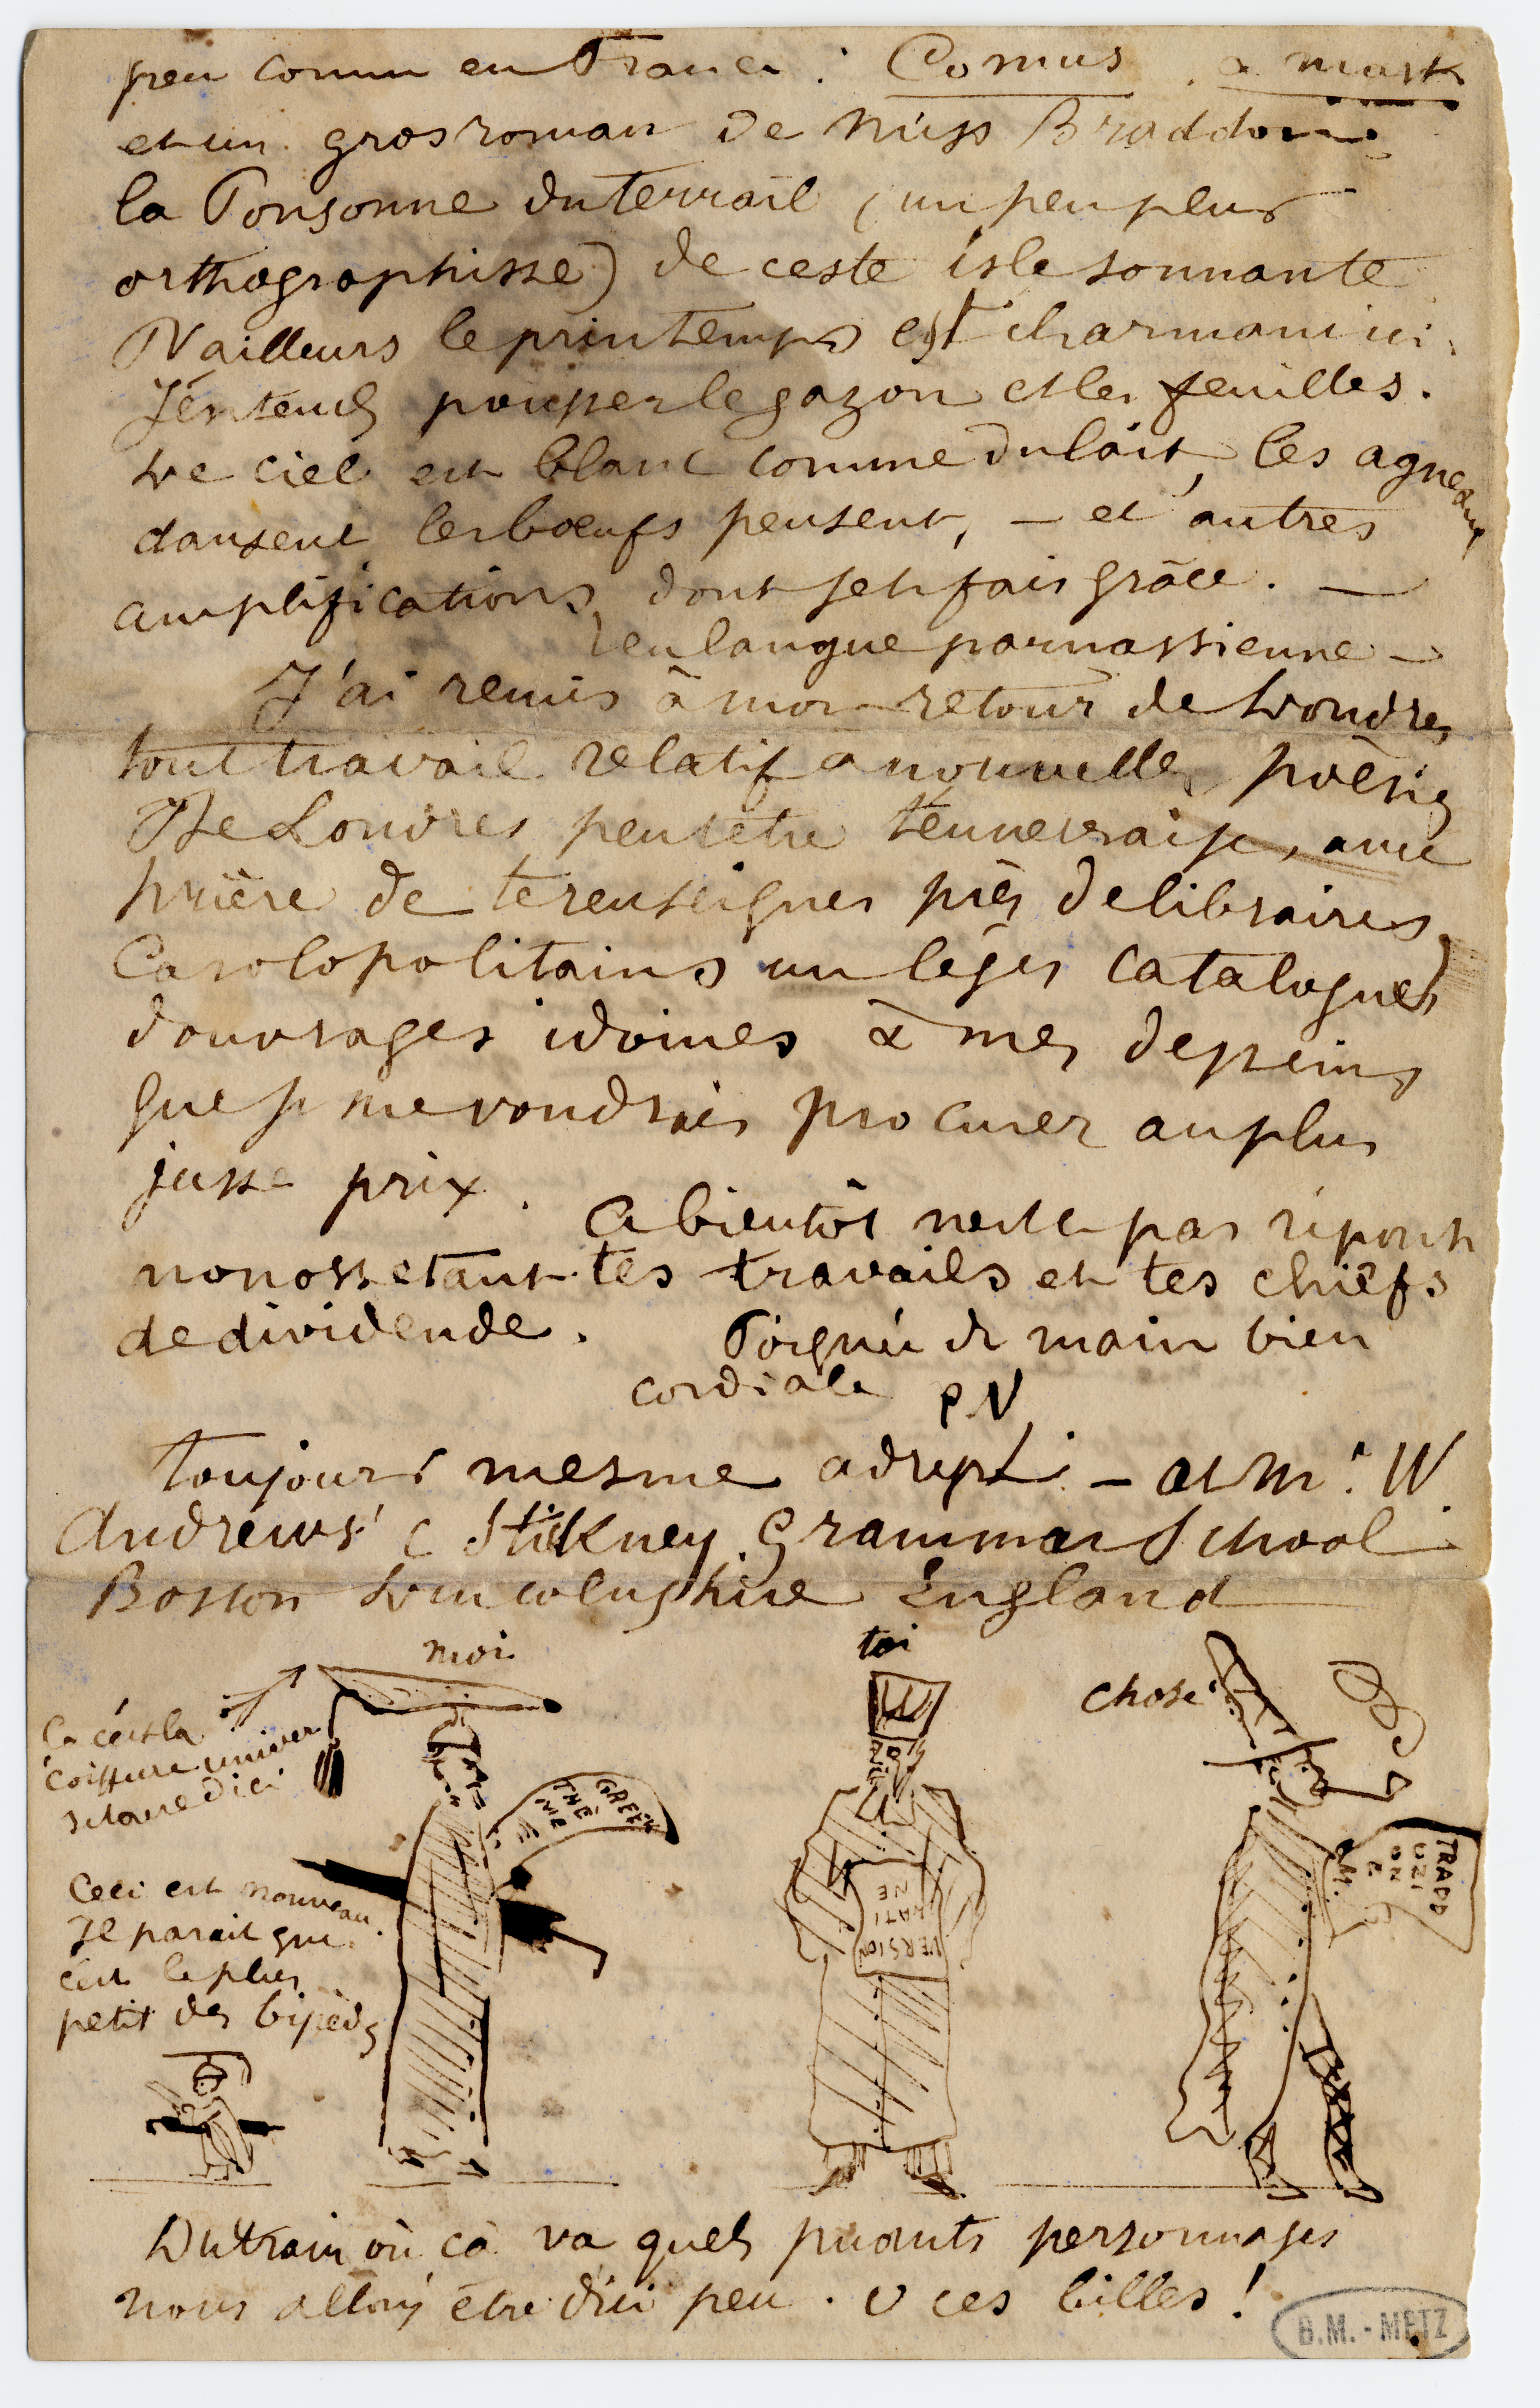 peu comun en France : Comus, a mask
et un gros roman de Miss Braddon
la Ponsonne du Terrail (un peu plus
orthographisse) de ceste isle sonnante
D'ailleurs le printemps est charmant ici.
J'entends pousser le gazon et les feuilles.
Le ciel est blanc comme du lait, les agneaux
dansent les bœufs pensent, – et autres
amplifications dont je te fais grâce. —
en langue parnassienne –
J'ai remis à mon retour de Londres
tout travail relatif à nouvelles poésies
De Londres peut être t'enverrai-je, avec
prière de te renseigner près de libraires
Carolopolitains un léger catalogue
d'ouvrages idoines à mes desseins
que je me voudrais procurer au plus
juste prix.
A bientôt n'est-ce pas réponse
nonosstant tes travails et tes chiefs
de dividende. Poignée de main bien
cordiale P.V
toujours mesme adresse – at Mr. W.
Andrews' Stickney Grammar School
Boston Lincolnshire England
moi
toi
chose
Ça c'est la
coiffure univer
sitaire d'ici
GREEK
THÈ
ME
VERSION
LATI
NE
TRADD
UZI
ON
E
Ceci est nouveau.
Il parait que
c'est le plus
petit des bipèdes
Du train où ça va quels puants personnages
nous allons être d'ici peu. O ces billes !
B.M. - METZ